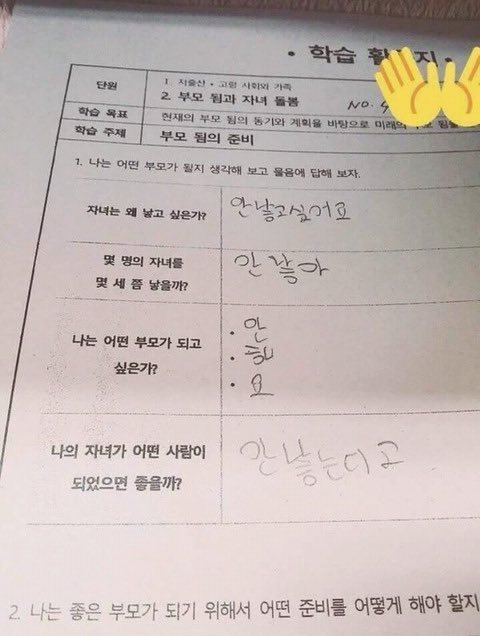 • 학습 활
지
단원
1. 저출산 • 고령 사회와 가족
2. 부모 됨과 자녀 돌봄
NO.
학습 목표
현재의 부모 됨의 동기와 계획을 바탕으로 미래의
학습 주제
부모 됨의 준비
1. 나는 어떤 부모가 될지 생각해 보고 물음에 답해 보자.
자녀는 왜 낳고 싶은가?
안낳고싶어요
몇 명의 자녀를
몇 세 쯤 낳을까?
안 낳아
나는 어떤 부모가 되고
싶은가?
• 안
• 해
• 요
나의 자녀가 어떤 사람이
되었으면 좋을까?
안 낳는다고
2. 나는 좋은 부모가 되기 위해서 어떤 준비를 어떻게 해야 할지